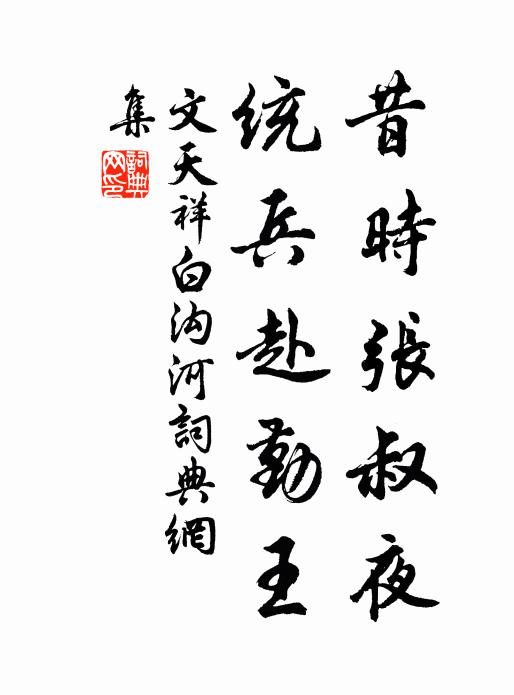 昔時張叔夜
統兵赴勤王
文天祥白沟河詞典網
集
詞典网印